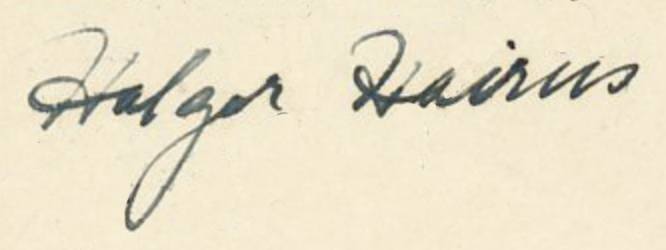 Holger Hairus